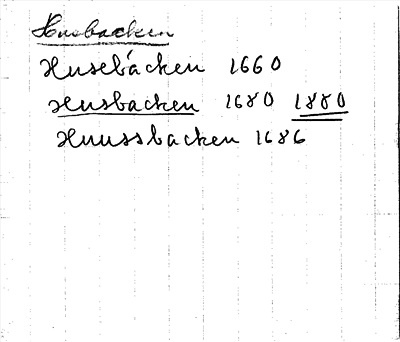 Husbacken
Husebacken 1660
Husbacken 1680 1880
Huussbacken 1686